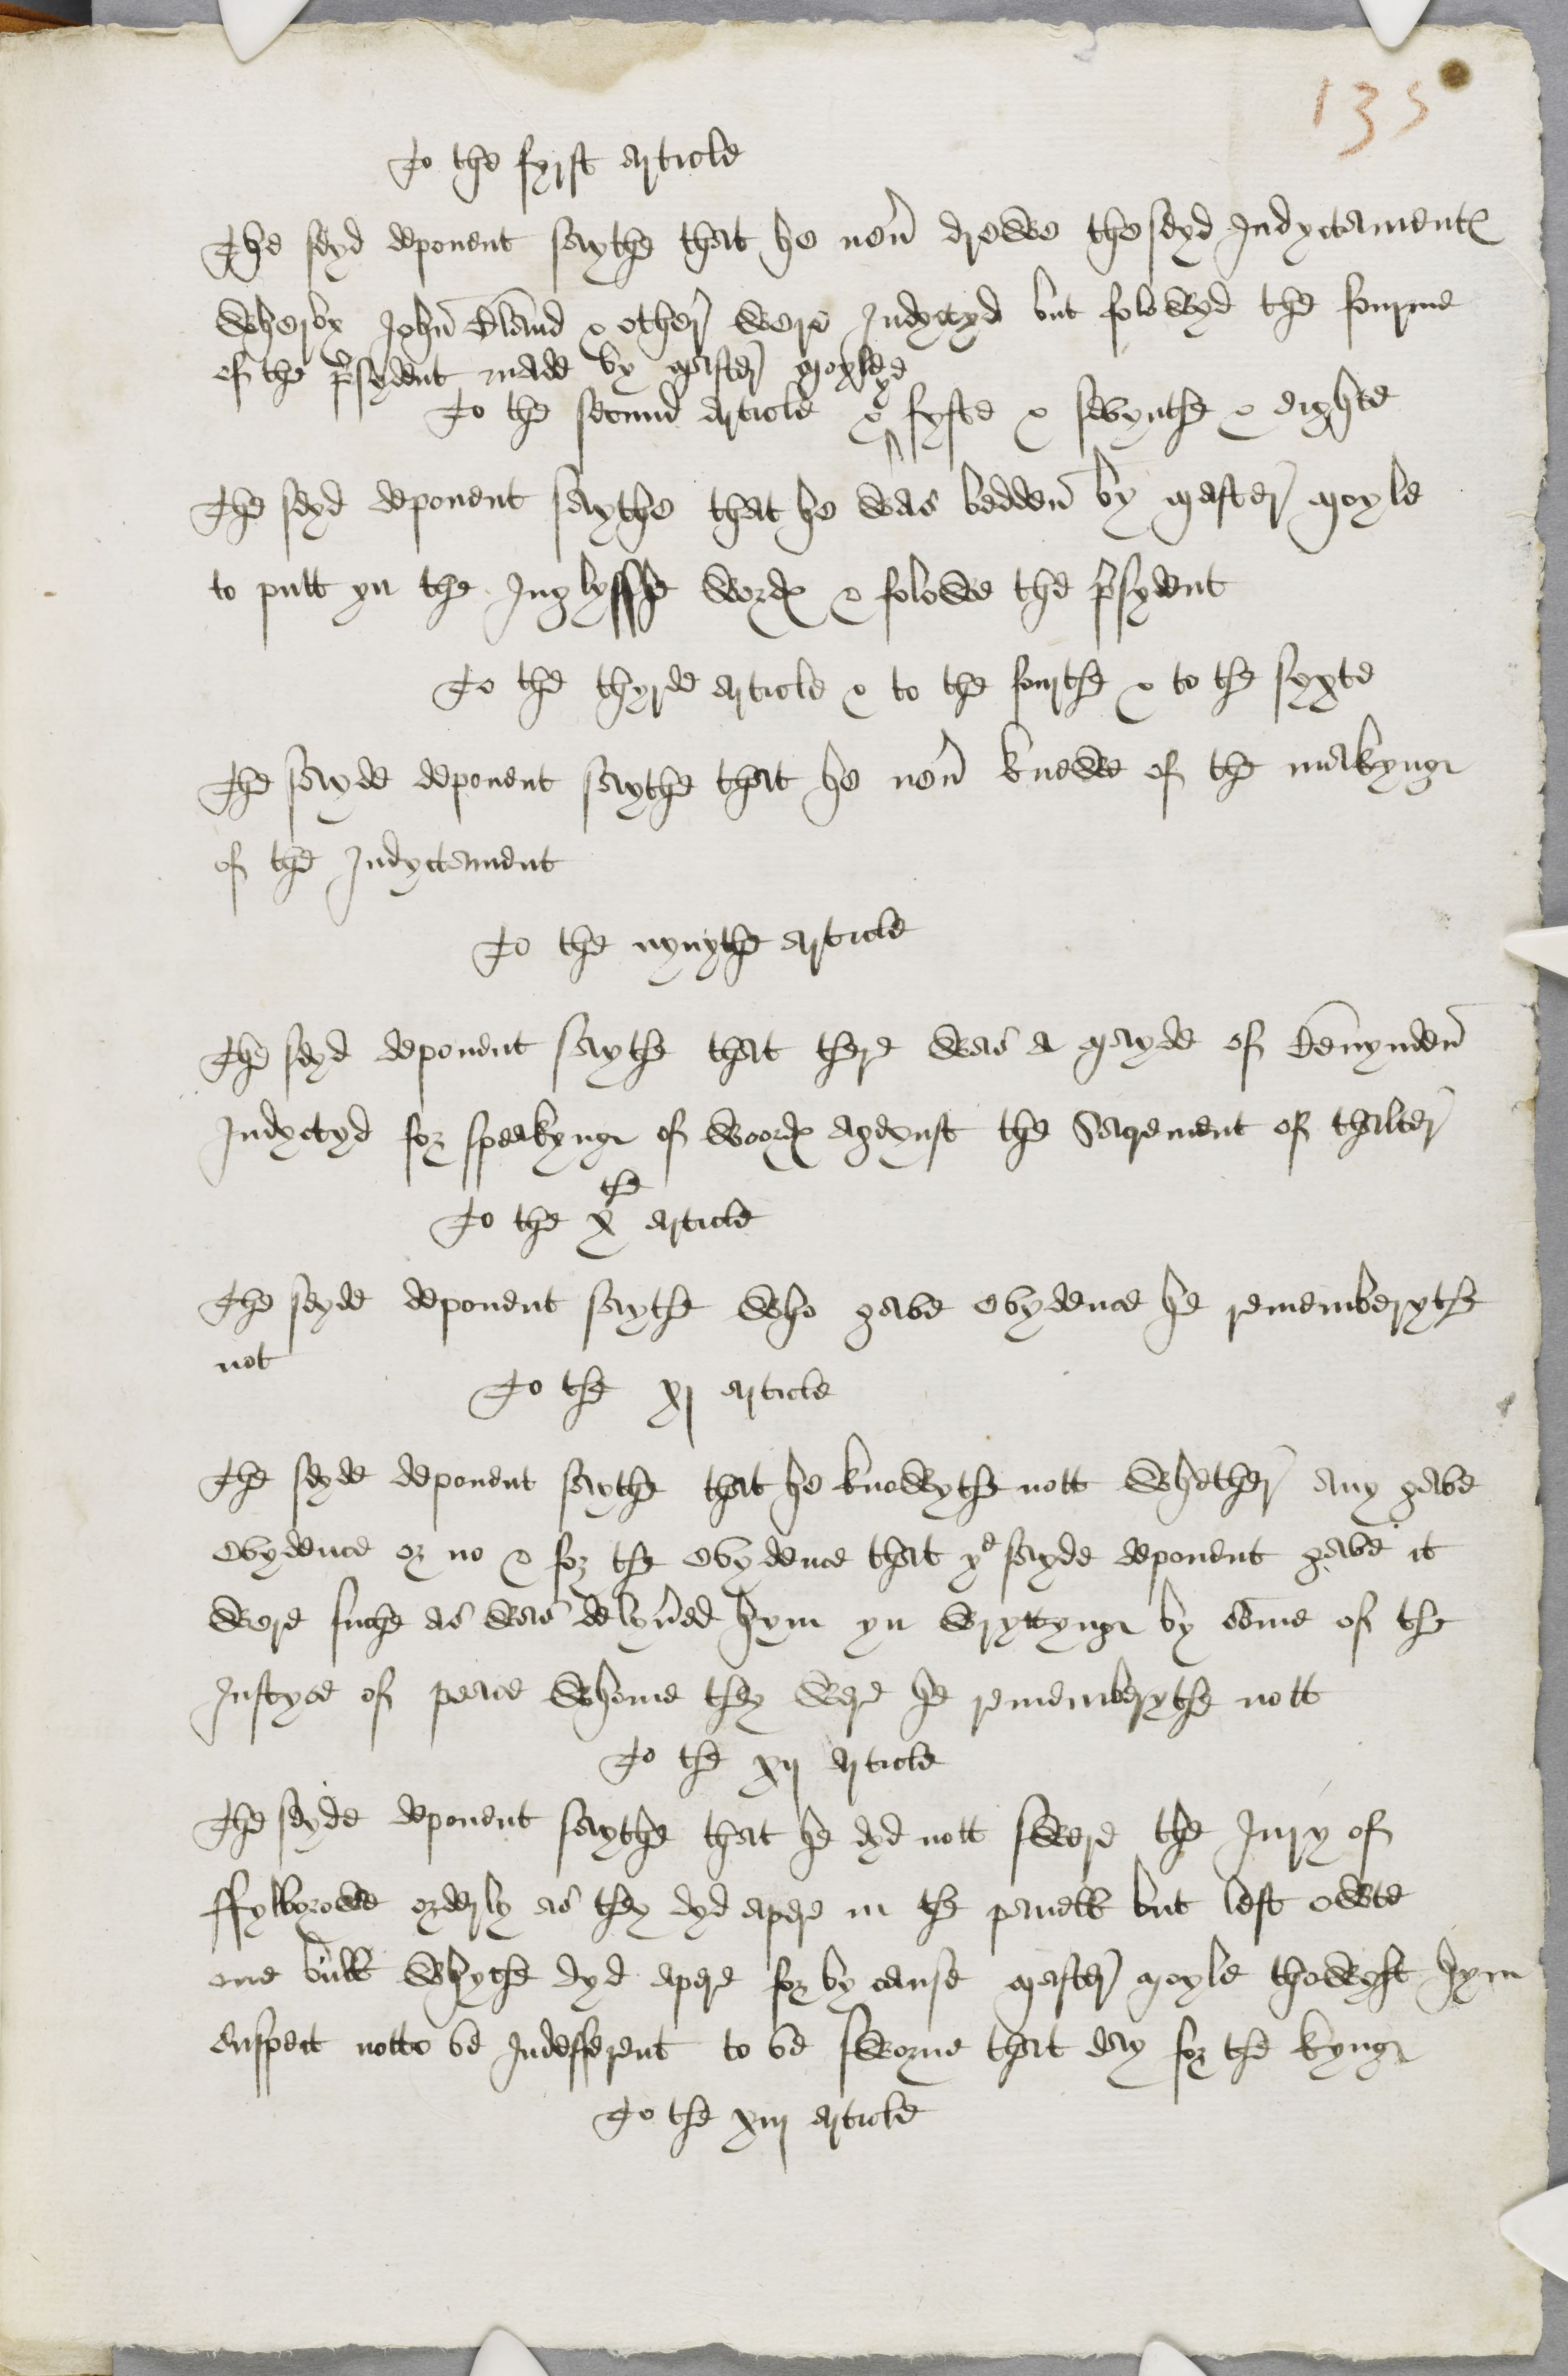 135
To the fyrst Article
The seyd deponent saythe that he neu' drewe the seyd Indyctamentes
wherby John Bland & other were Indyctyd but folowyd the fourme
of the p'sydent made by Master Moyle
To the secund Article & ye fyfte & sevynthe & eighte
The seyd deponent saythe that he was bedden by Master Moyle
to putt yn the Inglysshe wordes & folowe the p'sydent
To the thyrde Article & to the fourthe & to the syxte
The sayde deponent saythe that he neu' knewe of the makyng
of the Indyctament
To the nynythe Article
The seyd deponent saythe that there was a mayde of Benynden
Indyctyd for speakyng of woordes ageynst the Sacrement of thalter
To the xthe Article
The seyde deponent saythe who gave evydence he rememberythe
not
To the xj Article
The seyde deponent saythe that he knowythe nott whether any gave
evydence or no & for the evydence that ye sayde deponent gave it
were suche as was delyu'ed hym yn wryttyng by some of the
Justyce of peace whome they were he rememberythe nott
To the xij Article
The seyde deponent saythe that he dyd nott swere the Jury of
ffylborowe orderly as they dyd apere in the panell but left owte
one bull whyche dyd apere for by cause Master Moyle thowght hym
suspect notto be Indefferent to be sworne that day for the kyng
To the xiij Article